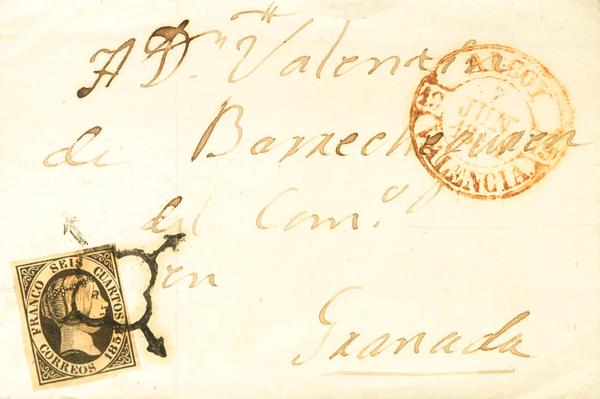 A Dn Valentin
de Barrecheguren
del Com.o
en
Granada
ALCOY
7
JUN
VALENCIA
FRANCO SEIS CUARTOS
CORREOS 1851